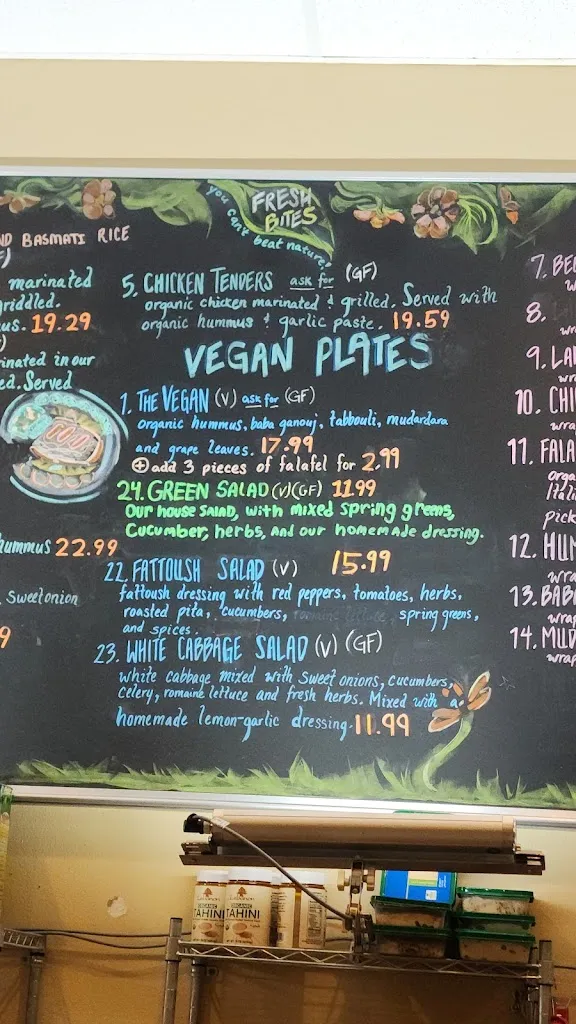 FRESH
BITES
you can't beat nature!
ND BASMATI RICE
marinated
riddled.
us. 19.29
inated in our
ed. Served
hummus 22.99
Sweet onion
9
5. CHICKEN TENDERS ask for (GF)
organic chicken marinated & grilled. Served with
organic hummus & garlic paste. 19.59
VEGAN PLATES
1. THE VEGAN (V) ask for (GF)
organic hummus, baba ganouj, tabbouli, mudardara
and grape leaves. 17.99
+ add 3 pieces of falafel for 2.99
24. GREEN SALAD (V)(GF) 11.99
Our house SALAD, with mixed spring greens,
Cucumber, herbs, and our homemade dressing.
22. FATTOUSH SALAD (V) 15.99
fattoush dressing with red peppers, tomatoes, herbs,
roasted pita, cucumbers, romaine lettuce, spring greens,
and spices.
23. WHITE CABBAGE SALAD (V) (GF)
white cabbage mixed with sweet onions, cucumbers,
celery, romaine lettuce and fresh herbs. Mixed with a
homemade lemon-garlic dressing. 11.99
7. BE
w
8.
wr
9. LA
wra
10. CHI
wra
11. FALA
orga
Itali
pick
12. HUM
wra
13. BAB
wrap
14. MUD
wrap
ORGANIC
TAHINI
ORGANIC
TAHINI